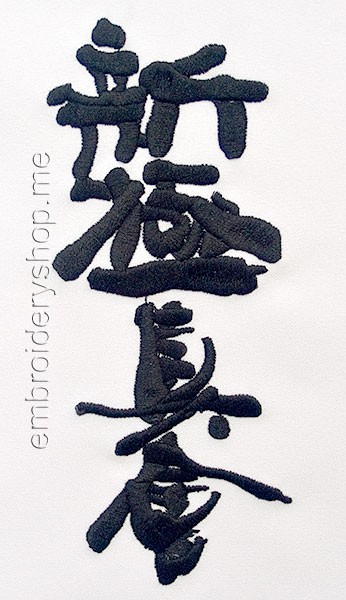 新極真會
embroideryshop.me